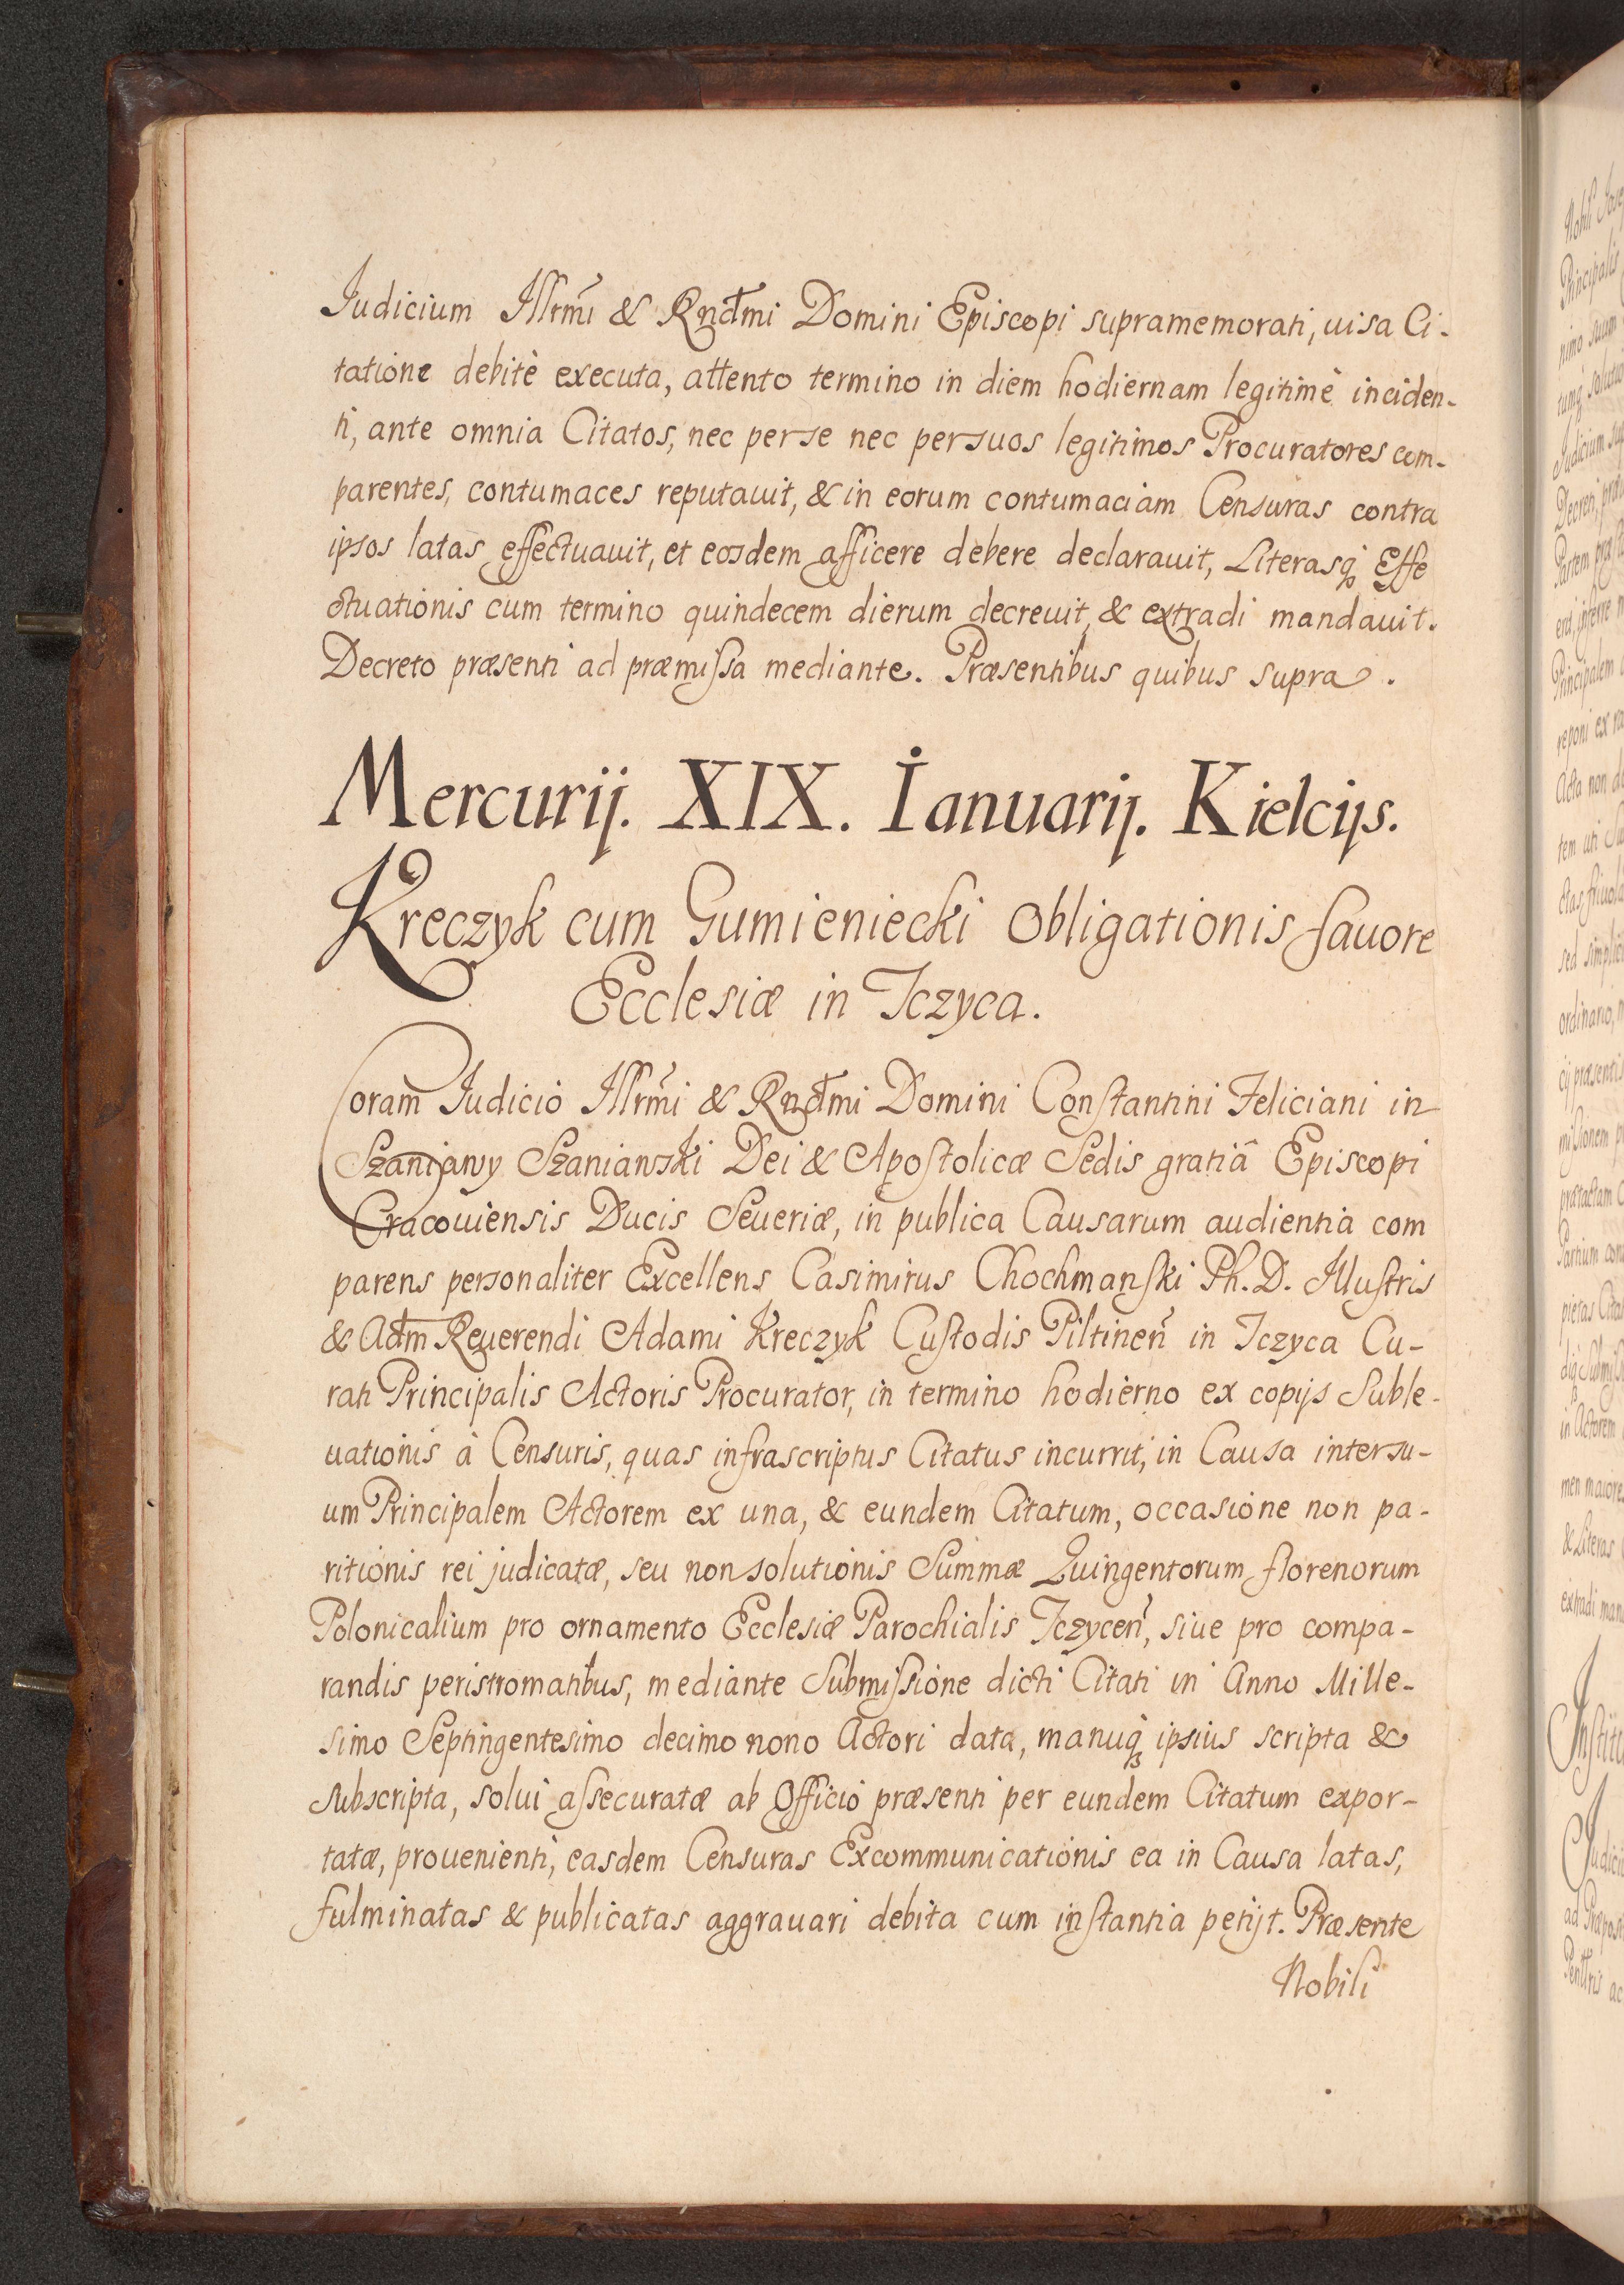 Judicium Illrm̃i & Rnd̃mi Domini Episcopi supramemorati, uisa Ci-
tatione debitè executa, attento termino in diem hodiernam legitimè inciden-
ti, ante omnia Citatos, nec per se nec per suos legitimos Procuratores com-
parentes, contumaces reputauit, & in eorum contumaciam Censuras contra
ipsos latas effectuauit, et eosdem afficere debere declarauit, Literasq; Effe
ctuationis cum termino quindecem dierum decreuit, & extradi mandauit.
Decreto præsenti ad præmissa mediante. Præsentibus quibus supra.
Mercurij. XIX. Ianuarij. Kielcijs.
Kreczyk cum Gumieniecki Obligationis fauore
Ecclesiæ in Iczyca.
Coram Judicio Illrm̃i & Rnd̃mi Domini Constantini Feliciani in
Szaniawy Szaniawski Dei & Apostolicæ Sedis gratiâ Episcopi
Cracouiensis Ducis Seueriæ, in publica Causarum audientia com
parens personaliter Excellens Casimirus Chochmanski Ph. D. Illustris
& Adm̃ Reuerendi Adami Kreczyk Custodis Piltineñ in Iczyca Cu-
rati Principalis Actoris Procurator, in termino hodierno ex copijs Suble-
uationis à Censuris, quas infrascriptus Citatus incurrit, in Causa inter su-
um Principalem Actorem ex una, & eundem Citatum, occasione non pa-
ritionis rei judicatæ, seu non solutionis Summæ Quingentorum florenorum
Polonicalium pro ornamento Ecclesiæ Parochialis Iczyceñ, siue pro compa-
randis peristromatibus, mediante Submissione dicti Citati in Anno Mille-
simo Septingentesimo decimo nono Actori data, manuq; ipsius scripta &
subscripta, solui assecuratæ ab Officio præsenti per eundem Citatum expor-
tatæ, prouenienti, easdem Censuras Excommunicationis ea in Causa latas,
fulminatas & publicatas aggrauari debita cum instantia petijt. Præsente
Nobili